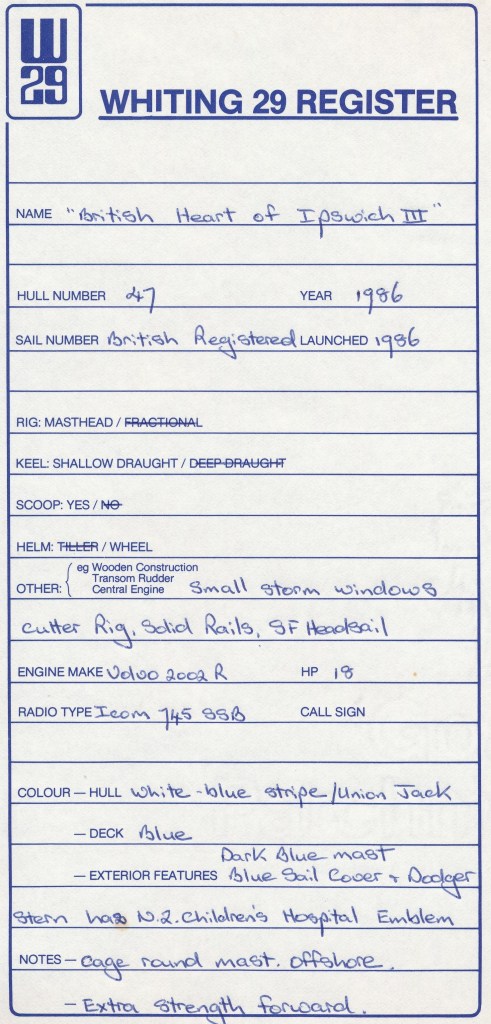 W
29
WHITING 29 REGISTER
NAME "British Heart of Ipswich III"
HULL NUMBER 47 YEAR 1986
SAIL NUMBER British Registered LAUNCHED 1986
RIG: MASTHEAD / FRACTIONAL
KEEL: SHALLOW DRAUGHT / DEEP DRAUGHT
SCOOP: YES / NO
HELM: TILLER / WHEEL
eg Wooden Construction
Transom Rudder
OTHER: Central Engine Small storm windows
cutter Rig, Solid Rails, SF Headsail
ENGINE MAKE Volvo 2002 R HP 18
RADIO TYPE Icom 745 SSB CALL SIGN
COLOUR — HULL White - blue stripe / Union Jack
— DECK Blue
Dark Blue mast
— EXTERIOR FEATURES Blue Sail Cover + Dodger
Stern has N.Z. Children's Hospital Emblem
NOTES — Cage round mast. Offshore.
— Extra strength forward.